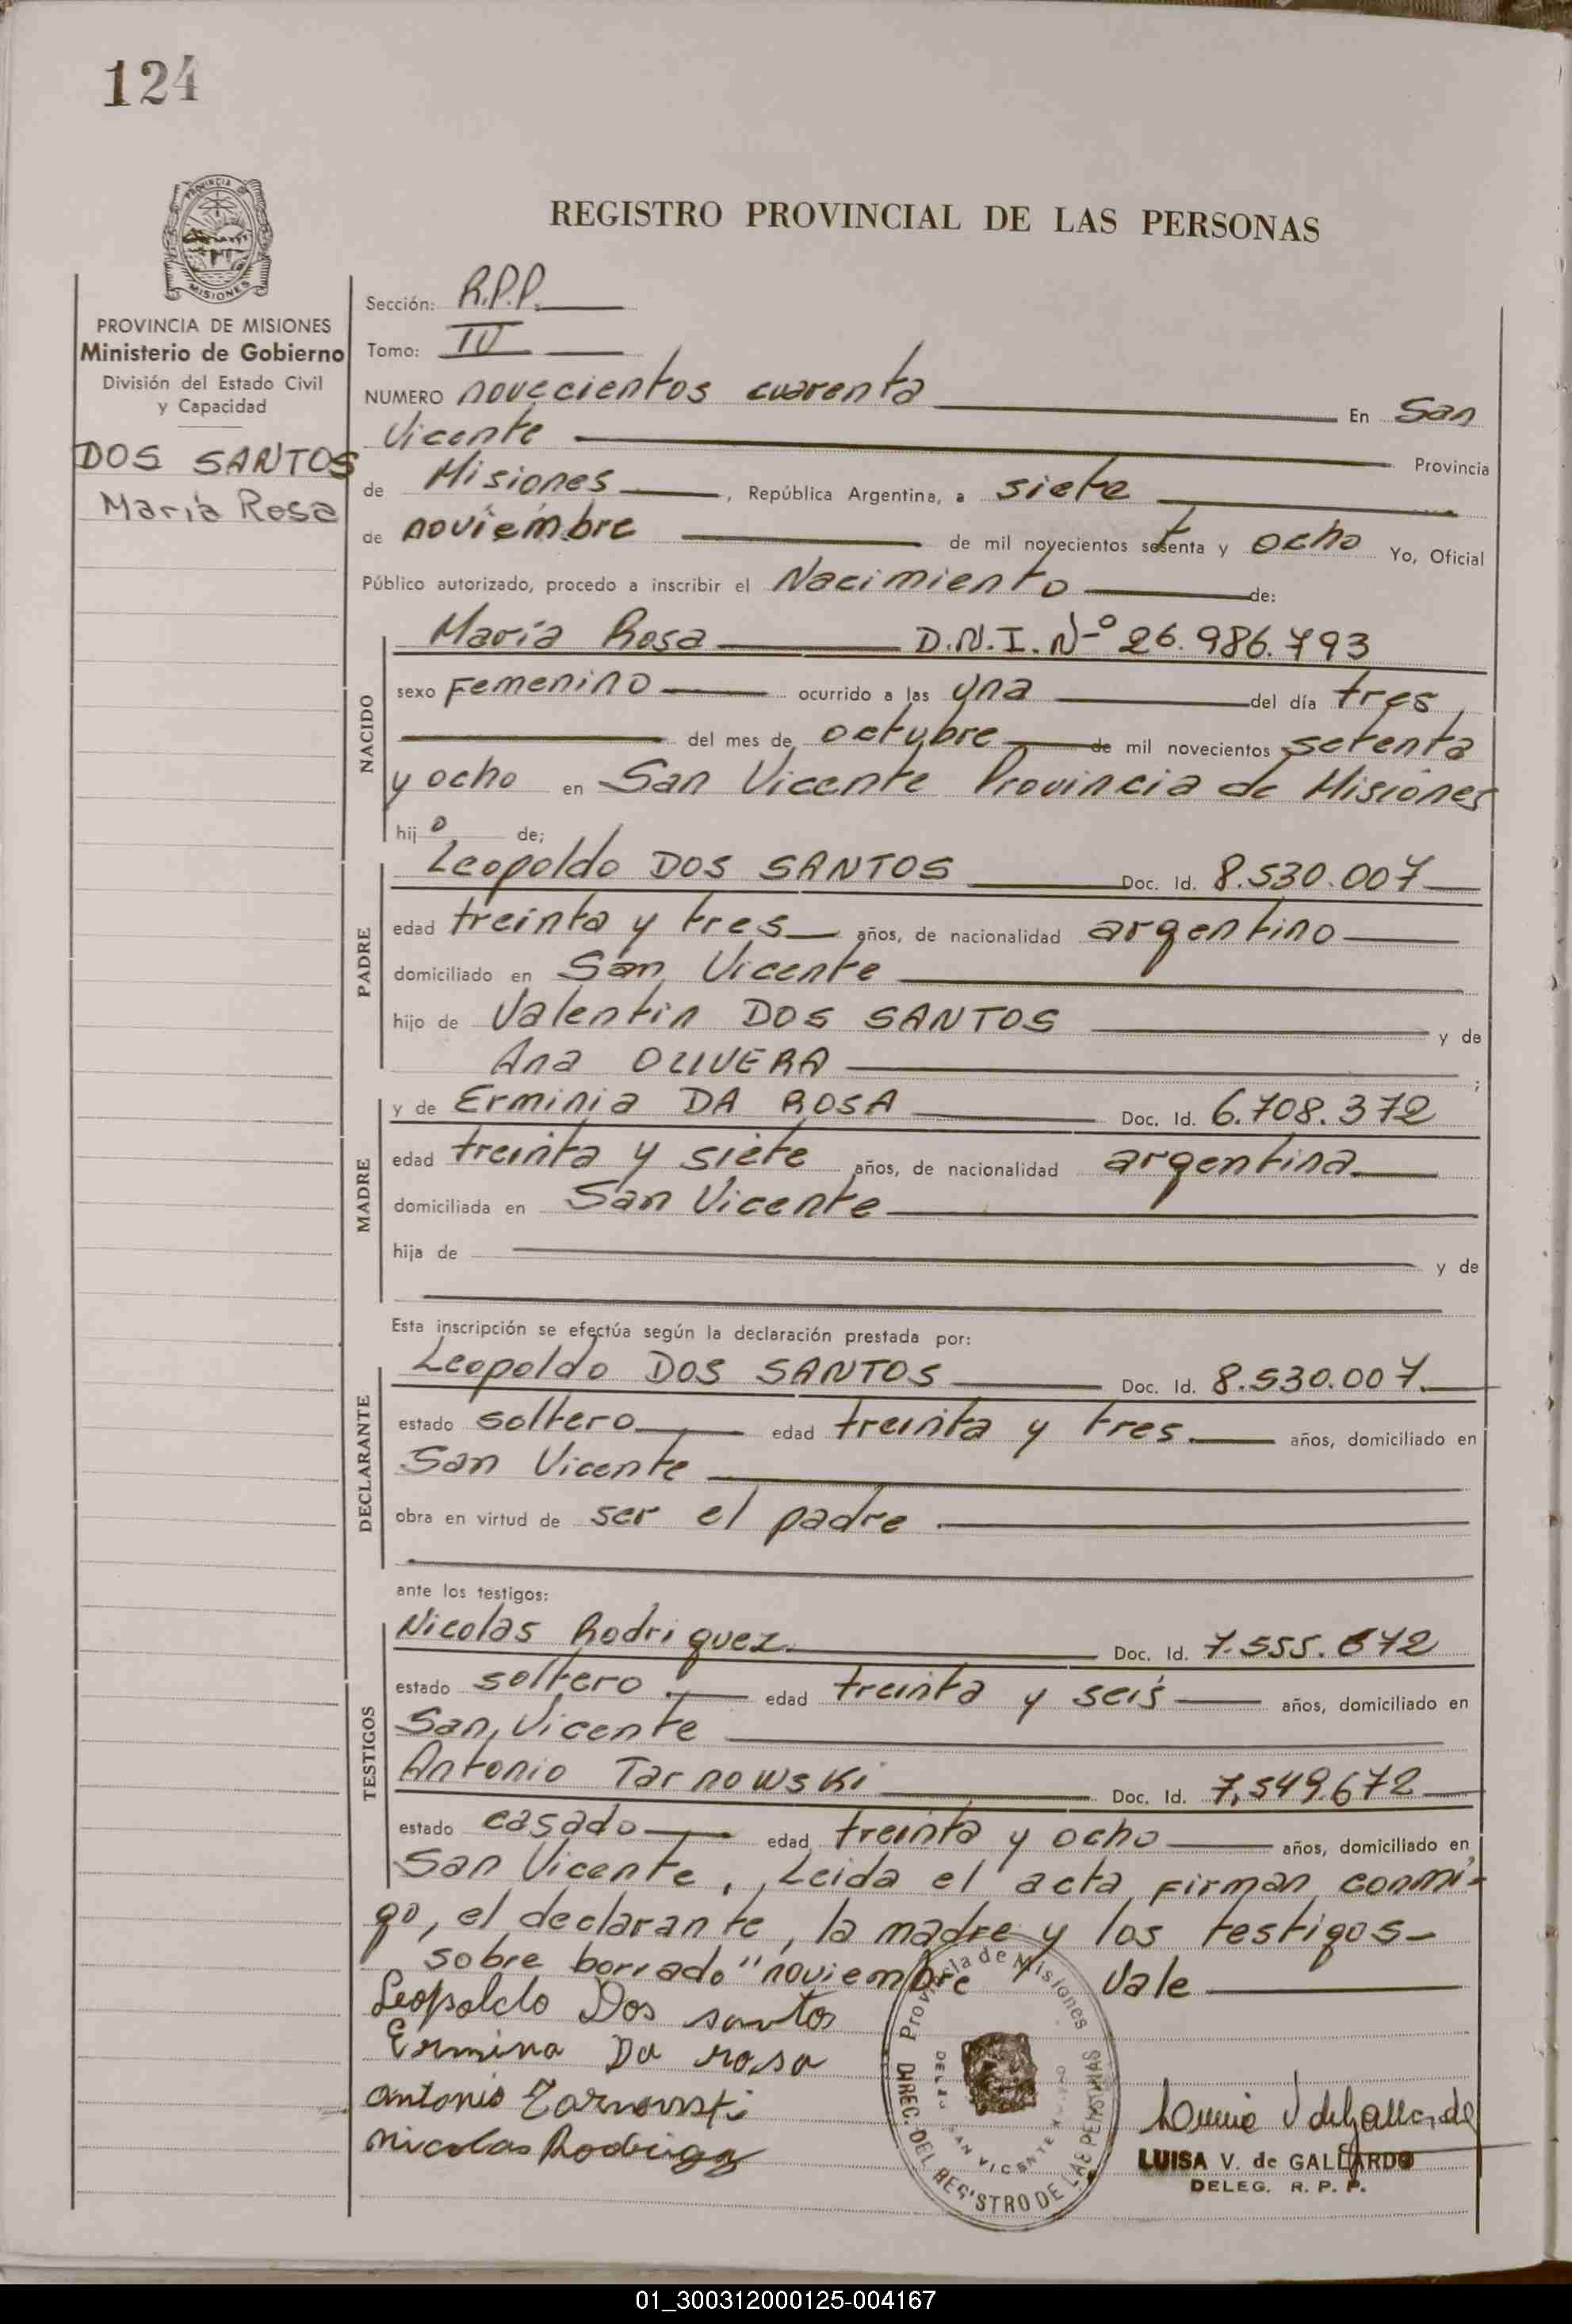 124
REGISTRO PROVINCIAL DE LAS PERSONAS
PROVINCIA DE MISIONES
Ministerio de Gobierno
División del Estado Civil
y Capacidad
DOS SANTOS
María Rosa
Sección: R.P.P.
Tomo: IV
NUMERO novecientos cuarenta En San
Vicente Provincia
de Misiones, República Argentina, a siete
de noviembre de mil novecientos setenta y ocho Yo, Oficial
Público autorizado, procedo a inscribir el Nacimiento de:
NACIDO
María Rosa D.N.I. Nº 26.986.793
sexo Femenino ocurrido a las una del día tres
del mes de octubre de mil novecientos setenta
y ocho en San Vicente Provincia de Misiones
hijo de;
PADRE
Leopoldo DOS SANTOS Doc. Id. 8.530.007
edad treinta y tres años, de nacionalidad argentino
domiciliado en San Vicente
hijo de Valentin DOS SANTOS y de
Ana OLIVERA ;
MADRE
y de Erminia DA ROSA Doc. Id. 6.708.372
edad treinta y siete años, de nacionalidad argentina
domiciliada en San Vicente
hija de y de
Esta inscripción se efectúa según la declaración prestada por:
DECLARANTE
Leopoldo DOS SANTOS Doc. Id. 8.530.007.
estado soltero edad treinta y tres. años, domiciliado en
San Vicente
obra en virtud de ser el padre.
ante los testigos:
TESTIGOS
Nicolas Rodriguez Doc. Id. 7.555.672
estado soltero edad treinta y seis años, domiciliado en
San Vicente
Antonio Tarnowski Doc. Id. 7,549.672
estado casado edad treinta y ocho años, domiciliado en
San Vicente, Leida el acta firman conmi-
go, el declarante, la madre y los testigos-
sobre borrado "noviembre" Vale
Leopoldo Dos santos
Ermina Da rosa
antonio Tarnowski
nicolas Rodrigez
Provincia de Misiones
DIREC. DEL REGISTRO DE LAS PERSONAS
SAN VICENTE
LUISA V. de GALLARDO
DELEG. R. P. P.
01_300312000125-004167